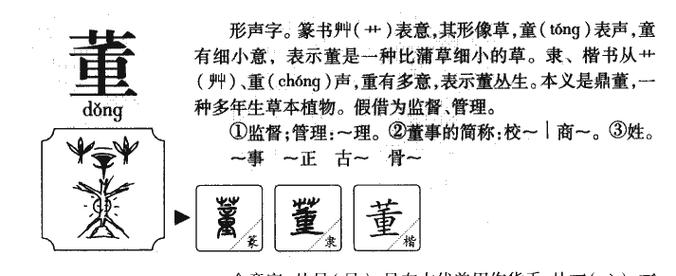 董
dǒng
形声字。篆书艸(艹)表意,其形像草,童(tóng)表声,童
有细小意，表示董是一种比蒲草细小的草。隶、楷书从艹
(艸)、重(chóng)声,重有多意,表示董丛生。本义是鼎董,一
种多年生草本植物。假借为监督、管理。
①监督;管理:～理。②董事的简称:校～｜商～。③姓。
～事 ～正 古～ 骨～
董 篆
董 隶
董 楷